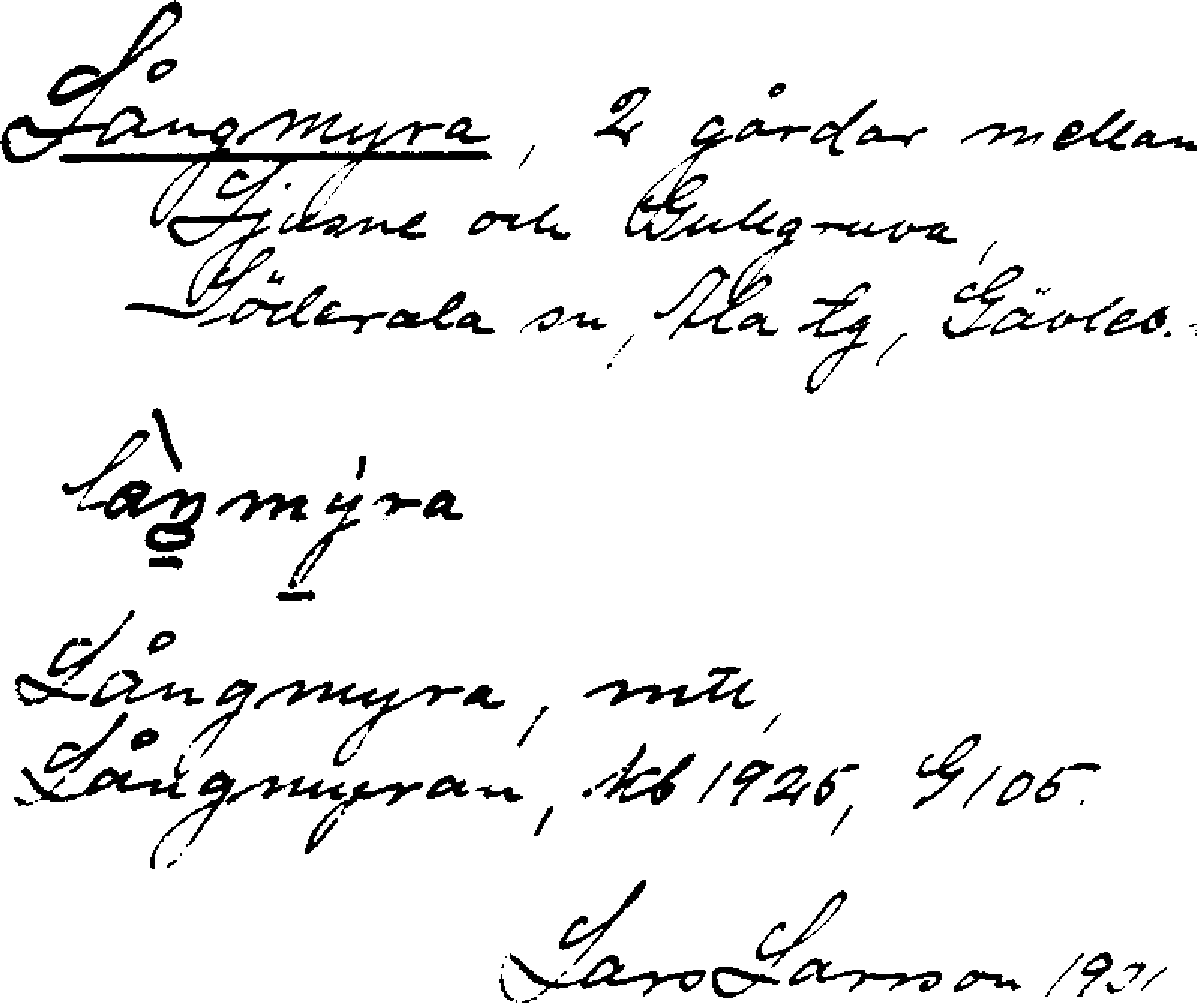 Långmyra, 2 gårdar mellan
Ljusne och Gullgruva,
Söderala sn, Ala tg, Gävleb.
Långmyra, mtl,
Långmyran, kb 1925, G 105.
Lars Larsson